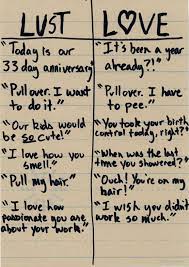 LUST
"Today is our
33 day anniversary"
"Pull over. I want
to do it."
"Our kids would
be so cute!"
"I love how you
smell."
"Pull my hair."
"I love how
passionate you are
about your work."
LOVE
"It's been a year
already?!"
"Pull over. I have
to pee."
"You took your birth
control today, right?"
"When was the last
time you showered?"
"Ouch! You're on my
hair!"
"I wish you didn't
work so much."